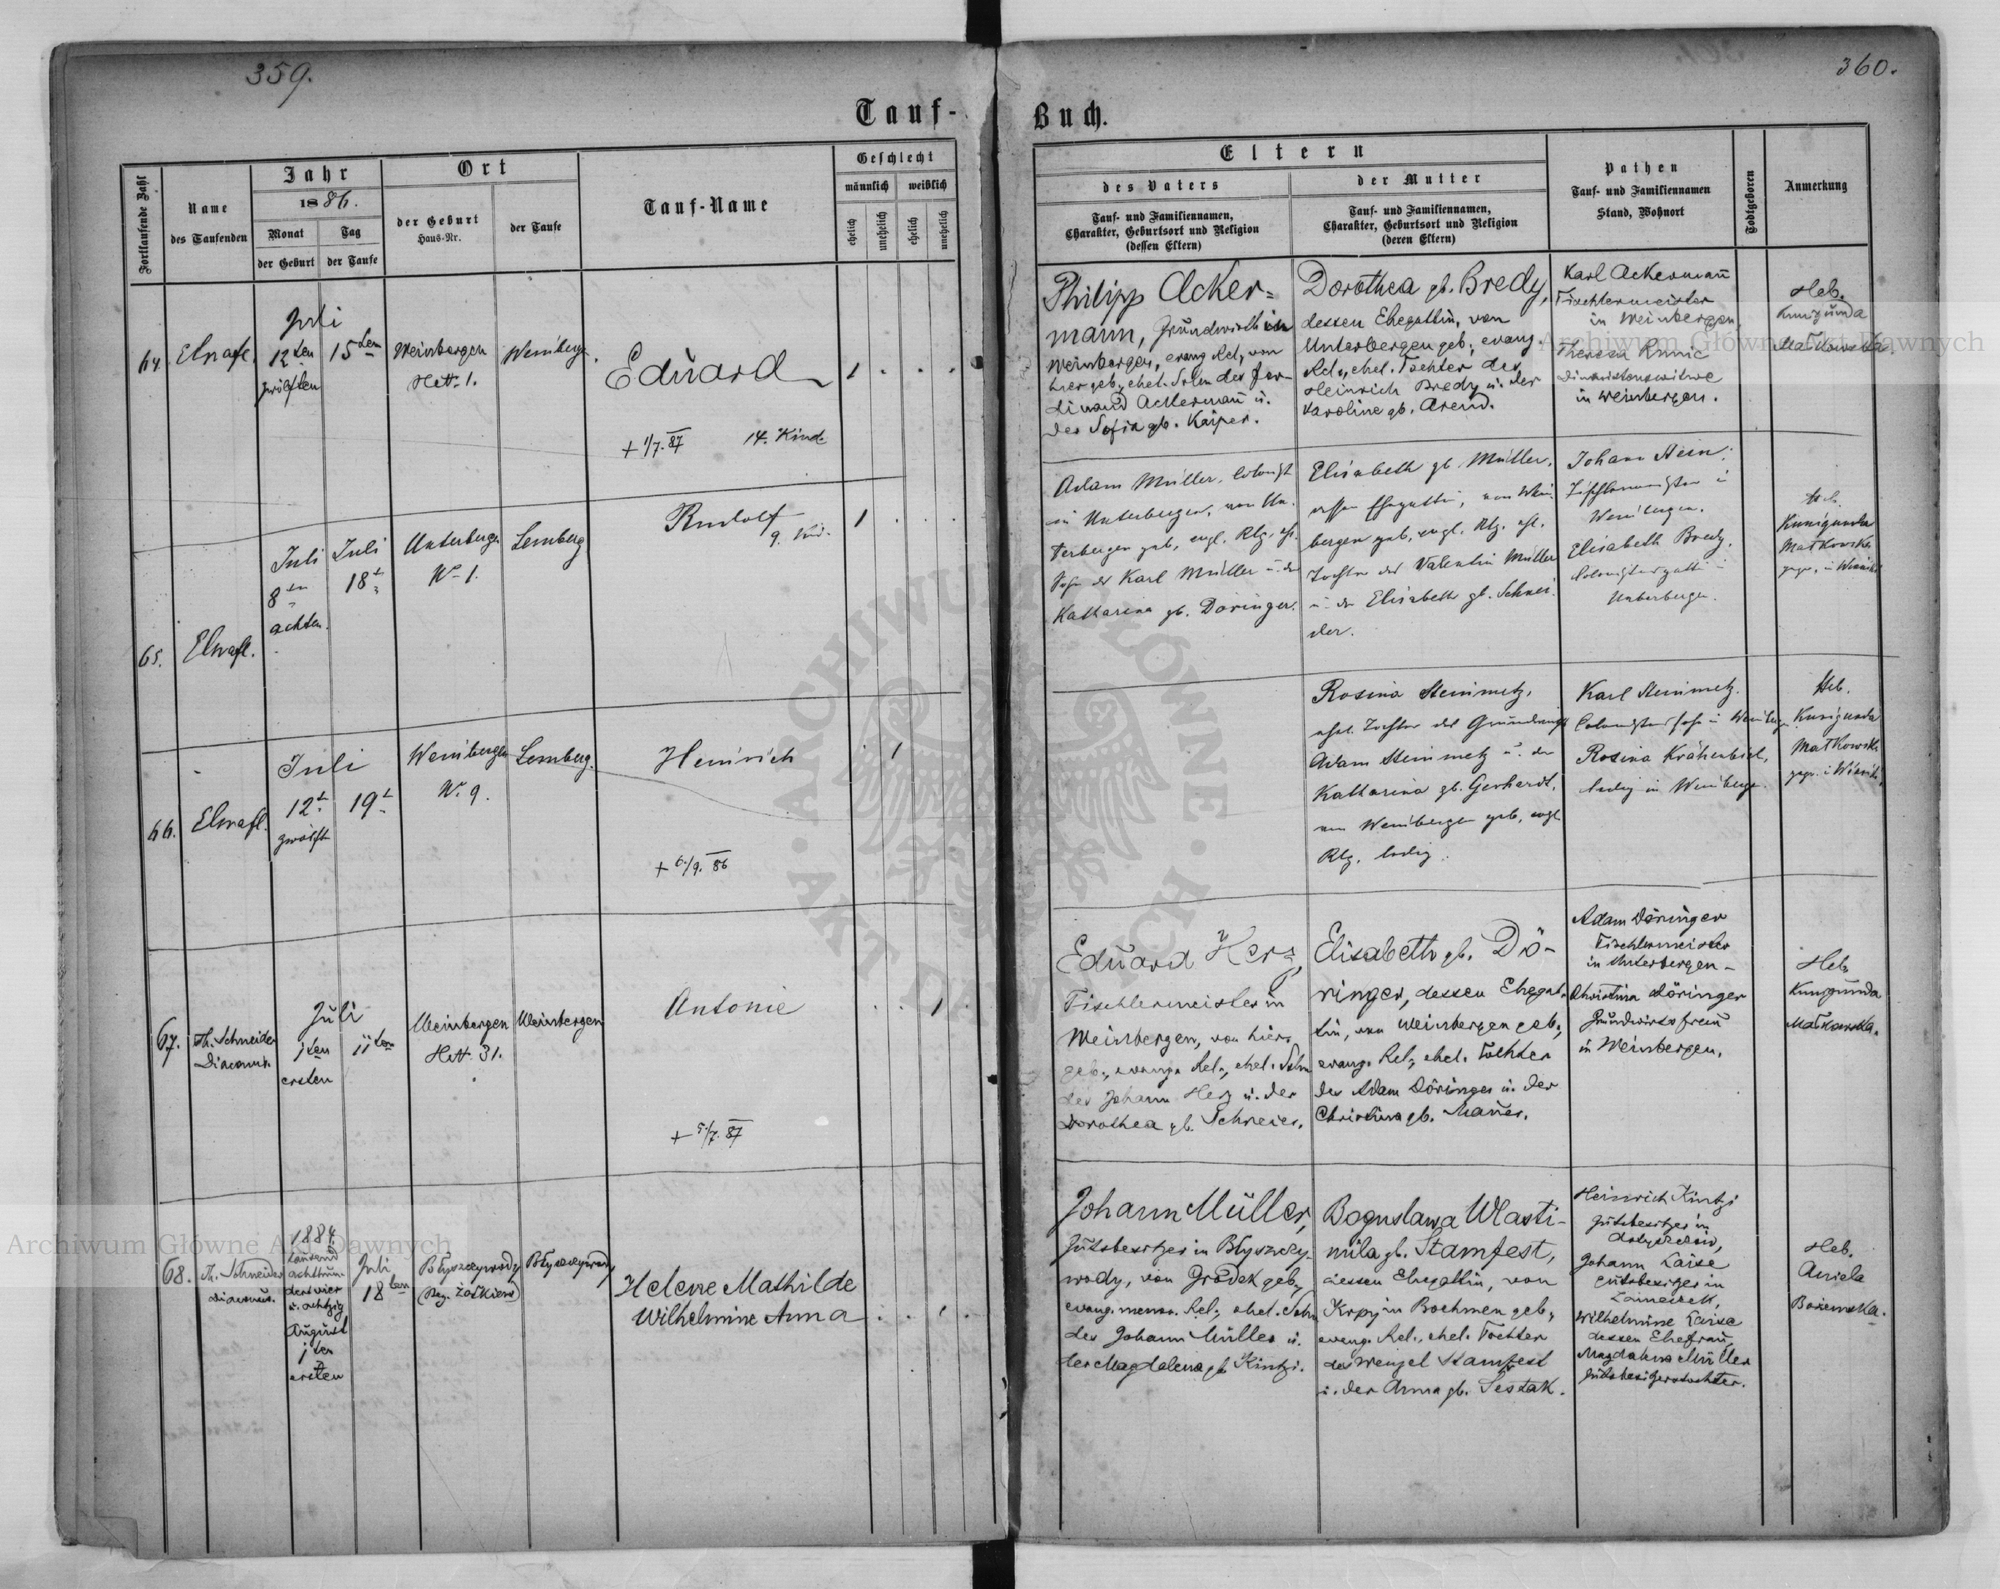 359.
360.
Tauf-
Buch.
Fortlaufende Zahl
Name
des Taufenden
Jahr
1886.
Monat
der Geburt
Tag
der Taufe
Ort
der Geburt
Haus-Nr.
der Taufe
Tauf-Name
Geschlecht
männlich
weiblich
ehelich
unehelich
ehelich
unehelich
Eltern
des Vaters
Tauf- und Familiennamen,
Charakter, Geburtsort und Religion
(dessen Eltern)
der Mutter
Tauf- und Familiennamen,
Charakter, Geburtsort und Religion
(deren Eltern)
Pathen
Tauf- und Familiennamen
Stand, Wohnort
Todtgeboren
Anmerkung
64.
Juli
12ten
zwölften
15ten
Weinbergen
Weinbergen
Eduard
1
+ 1/7. 87
14. Kind
Philipp Acker=
mann, Grundwirth in
Weinbergen, evang. Rel., von
hier geb., ehel. Sohn des Fer-
dinand Ackermann u.
der Sofia gb. Kaiper.
Dorothea gb. Bredy,
dessen Ehegattin, von
Unterbergen geb., evang.
Rel., ehel. Tochter des
Heinrich Bredy u. der
Karoline gb. Arend.
Karl Ackermann
Tischlermeister
in Weinbergen,
in Weinbergen.
Heb.
Kunigunda
Matkowska.
65.
Juli
8ten
achten.
Juli
18t
Unterbergen
No 1.
Lemberg
Rudolf
9. Kind.
1
Adam Müller, Colonist
in Unterbergen, von Un-
terbergen geb., evgl. Rlg., ehl.
Sohn des Karl Müller u. der
Katharina gb. Döringer.
Elisabeth gb. Müller,
dessen Ehegattin, von Wein-
bergen geb., evgl. Rlg. ehl.
Tochter des Valentin Müller
u. der Elisabeth gb. Schnei-
der.
Tischlermeister in
Weinbergen.
Elisabeth Bredy,
Unterbergen.
Heb.
Kunigunda
Matkowska
66.
Juli
12t
zwölft
19t
Weinbergen
No 9.
Lemberg.
Heinrich
1
+ 6/9. 86
Rosina Steinmetz,
ehel. Tochter des Grundwirth
Adam Steinmetz u. der
Katharina gb. Gerhardt,
von Weinbergen geb., evgl.
Rlg. ledig.
Karl Steinmetz.
Rosina Kräherbiel,
ledig in Weinbergen.
Heb.
Kunigunda
Matkowska
67.
Th. Schneider
Diaconus.
Juli
1ten
ersten
11ten
Weinbergen
31.
Weinbergen
Antonie
1
+ 5/7. 87
Eduard Herz,
Tischlermeister in
Weinbergen, von hier
geb., evang. Rel., ehel. Sohn
des Johann Herz u. der
Dorothea gb. Schreier.
Elisabeth gb. Dö-
ringer, dessen Ehegat-
tin, von Weinbergen geb.,
evang. Rel., ehel. Tochter
des Adam Döringer u. der
Christina gb. Mauer.
Adam Döringer
Tischlermeister
in Unterbergen -
Christina Döringer
Grundwirtsfrau
in Weinbergen.
Heb.
Kunigunda
Matkowska.
68.
Th. Schneider
Diaconus.
1884.
tausend
achthun-
dert vier
u. achtzig
August
1ten
ersten
Juli
18ten
Błyszczywody
(Bez. Żółkiew)
Błyszczywody
Helene Mathilde
Wilhelmine Anna
1
Johann Müller,
Gutsbesitzer in Błyszczy-
wody, von Grodek geb.,
evang. menn. Rel., ehel. Sohn
des Johann Müller u.
der Magdalena gb. Kintzi.
Boguslawa Wlasti-
mila gb. Stamfest,
dessen Ehegattin, von
in Boehmen geb.,
evang. Rel., ehel. Tochter
des Wenzel Stamfest
u. der Anna gb. Sestak.
Heinrich Kintzi
Gutsbesitzer in
Johann Laise
Gutsbesitzer in
Wilhelmine Laise
dessen Ehefrau,
Magdalena Müller
Gutsbesitzerstochter.
Heb.
Aniela
Archiwum Główne Akt Dawnych
Archiwum Główne Akt Dawnych
ARCHIWUM GŁÓWNE AKT DAWNYCH